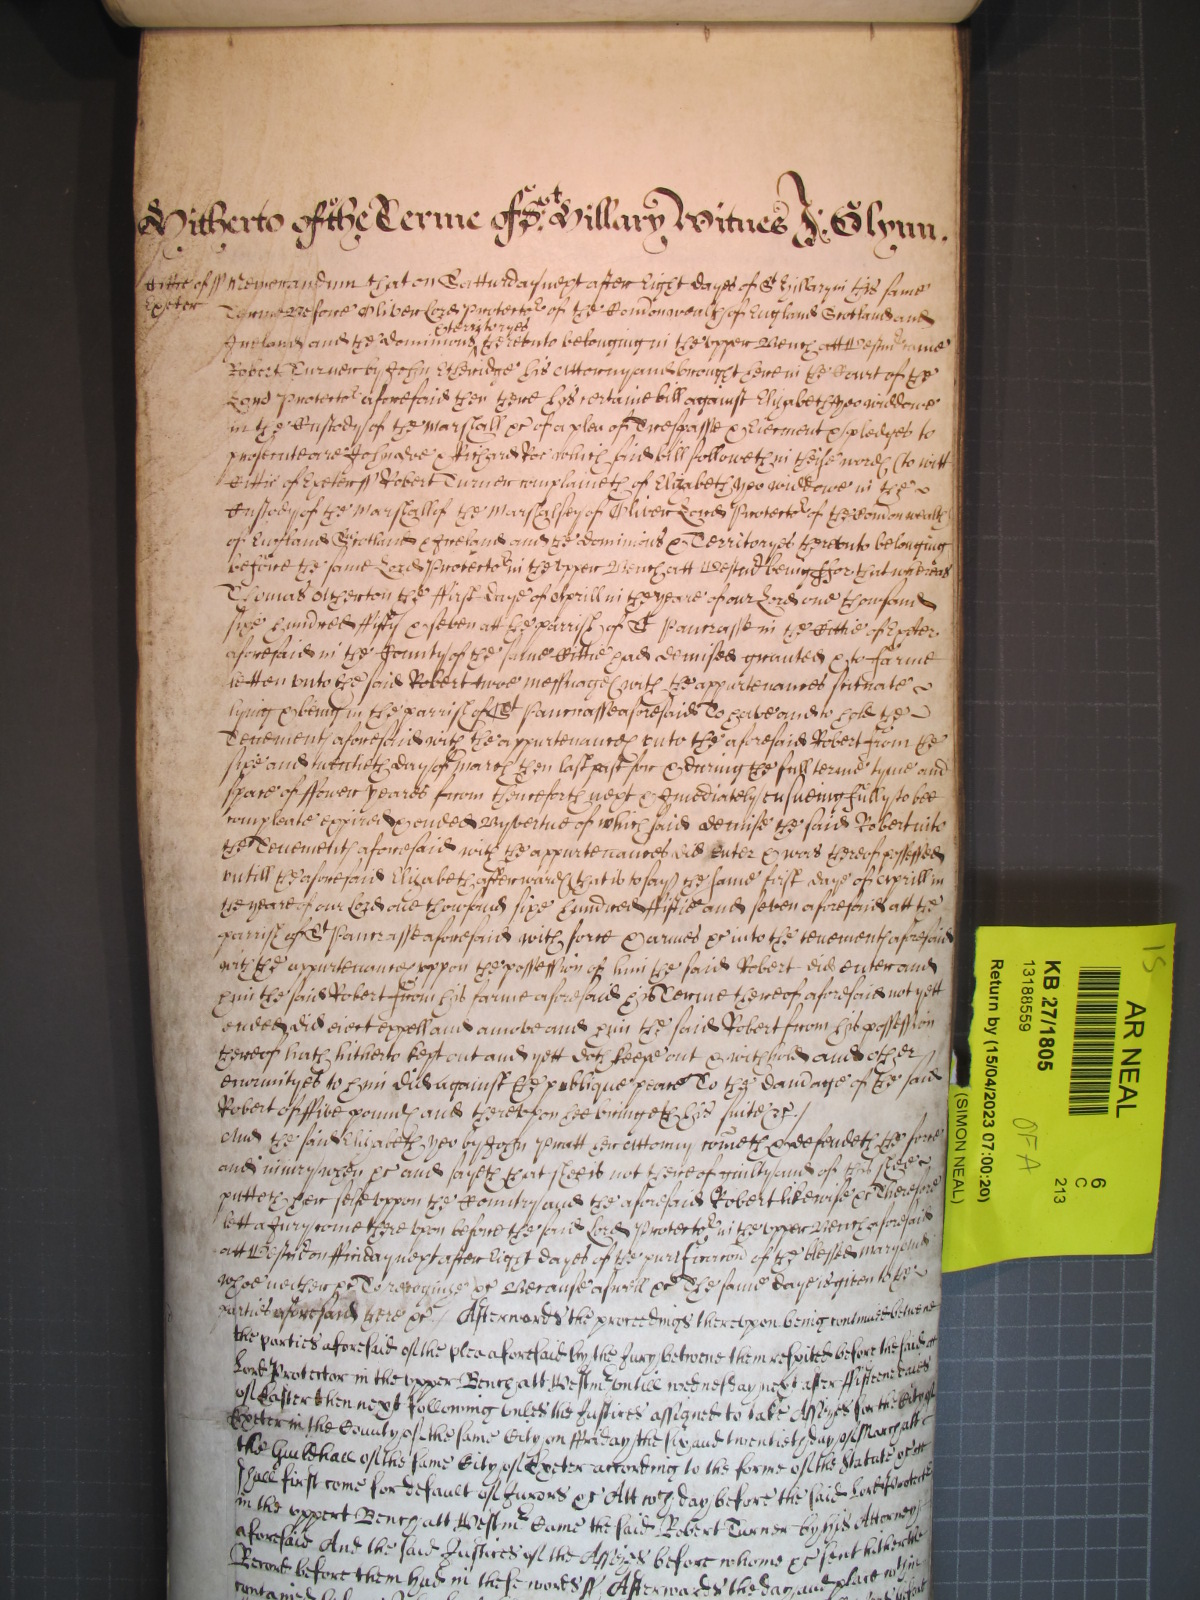 Hitherto of the Terme of St. Hillary Witnes J: Glynn.
Cittie of ss
Exeter
Memorandum that on Satturday next after Eight dayes of St Hillary in this same
Terme Before Oliver Lord Protector of the Comonwealth of England Scotland and
Ireland and the dominions & territoryes thereunto belonging in the upper Bench att Westmr came
Robert Turner by John Etheridge his Attorny and brought here in the Court of the
Lord Protector aforesaid then there his certaine bill against Elizabeth Yeo widdowe
in the Custody of the Marshall &c of a plea of Trespasse & Eiectment & pledges to
prosecute are John Doe & Richard Roe which said bill followeth in these words (to witt)
Cittie of Exeter ss Robert Turner complaineth of Elizabeth Yeo widdowe in the
Custody of the Marshall of the Marshalsey of Oliver Lord Protector of the Comonwealth
of England Scotland & Ireland and the dominions & Territoryes thereunto belonging
before the same Lord Protector in the upper Bench att Westmr being ffor that whereas
Thomas Atherton the ffirst daye of Aprill in the yeare of our Lord one thowsand
sixe hundred fifty & seven att the parrish of St Pancrasse in the Cittie of Exeter
aforesaid in the County of the same Cittie had demised granted & to farme
letten unto the said Robert twoe messuages with the appurtenances scituate
lying & being in the parrish of St Pancrasse aforesaid To have and to hold the
Tenements aforesaid with the appurtenances unto the aforesaid Robert from the
sixe and twentieth day of March then last past for & during the full terme tyme and
space of ffower yeares from thenceforth next & imediately ensueing fully to bee
compleate expired & ended By vertue of which said demise the said Robert into
the Tenements aforesaid with the appurtenances did enter & was thereof possessed
untill the aforesaid Elizabeth afterwards that is to say the same first daye of Aprill in
the yeare of our Lord one thowsand sixe hundred ffiftie and seven aforesaid att the
parrish of St Pancrasse aforesaid with force & armes &c into the tenements aforesaid
with the appurtenances uppon the possession of him the said Robert did enter and
him the said Robert from his farme aforesaid his Terme thereof aforesaid not yett
ended did eiect expell and amove and him the said Robert from his possession
thereof hath hitherto kept out and yett doth keepe out & withhold and other
enormityes to him did against the publique peace To the damage of the said
Robert of ffive pounds and thereupon hee bringeth his suite &c./
And the said Elizabeth Yeo by John Pratt her Attorny cometh & defendeth the force
and iniury when &c and sayeth that shee is not thereof guilty and of this shee
putteth her selfe uppon the Country and the aforesaid Robert likewise &c Therefore
lett a Jury come thereupon before the said Lord Protector in the upper Bench aforesaid
att Westmr on ffriday next after Eight dayes of the purificacion of the blessed Mary and
whoe neither &c To recognize &c Because aswell &c The same daye is given to the
parties aforesaid here &c./ Afterwards the proceedings thereupon being continued betweene
the parties aforesaid of the plea aforesaid by the Jury betweene them respited before the said
Lord Protector in the upper Bench att Westmr untill wednesday next after ffifteene dayes
of Easter then next following unles the Justices assigned to take Assizes for the City of
Exeter in the County of the same City on ffriday the six and twentieth day of March att
the Guildhall of the same City of Exeter according to the forme of the Statute &c
shall first come for default of Jurors &c Att wch day before the said Lord Protector
in the upper Bench att Westmr Came the said Robert Turner by his Attorney
aforesaid And the said Justices of the Assizes before whome &c sent hither the
Record before them had in these words ss Afterwards the day and place within
contained before
AR NEAL
KB 27/1805
13188559
Return by (15/04/2023 07:00:20)
(SIMON NEAL)
6
C
213
OFA
15